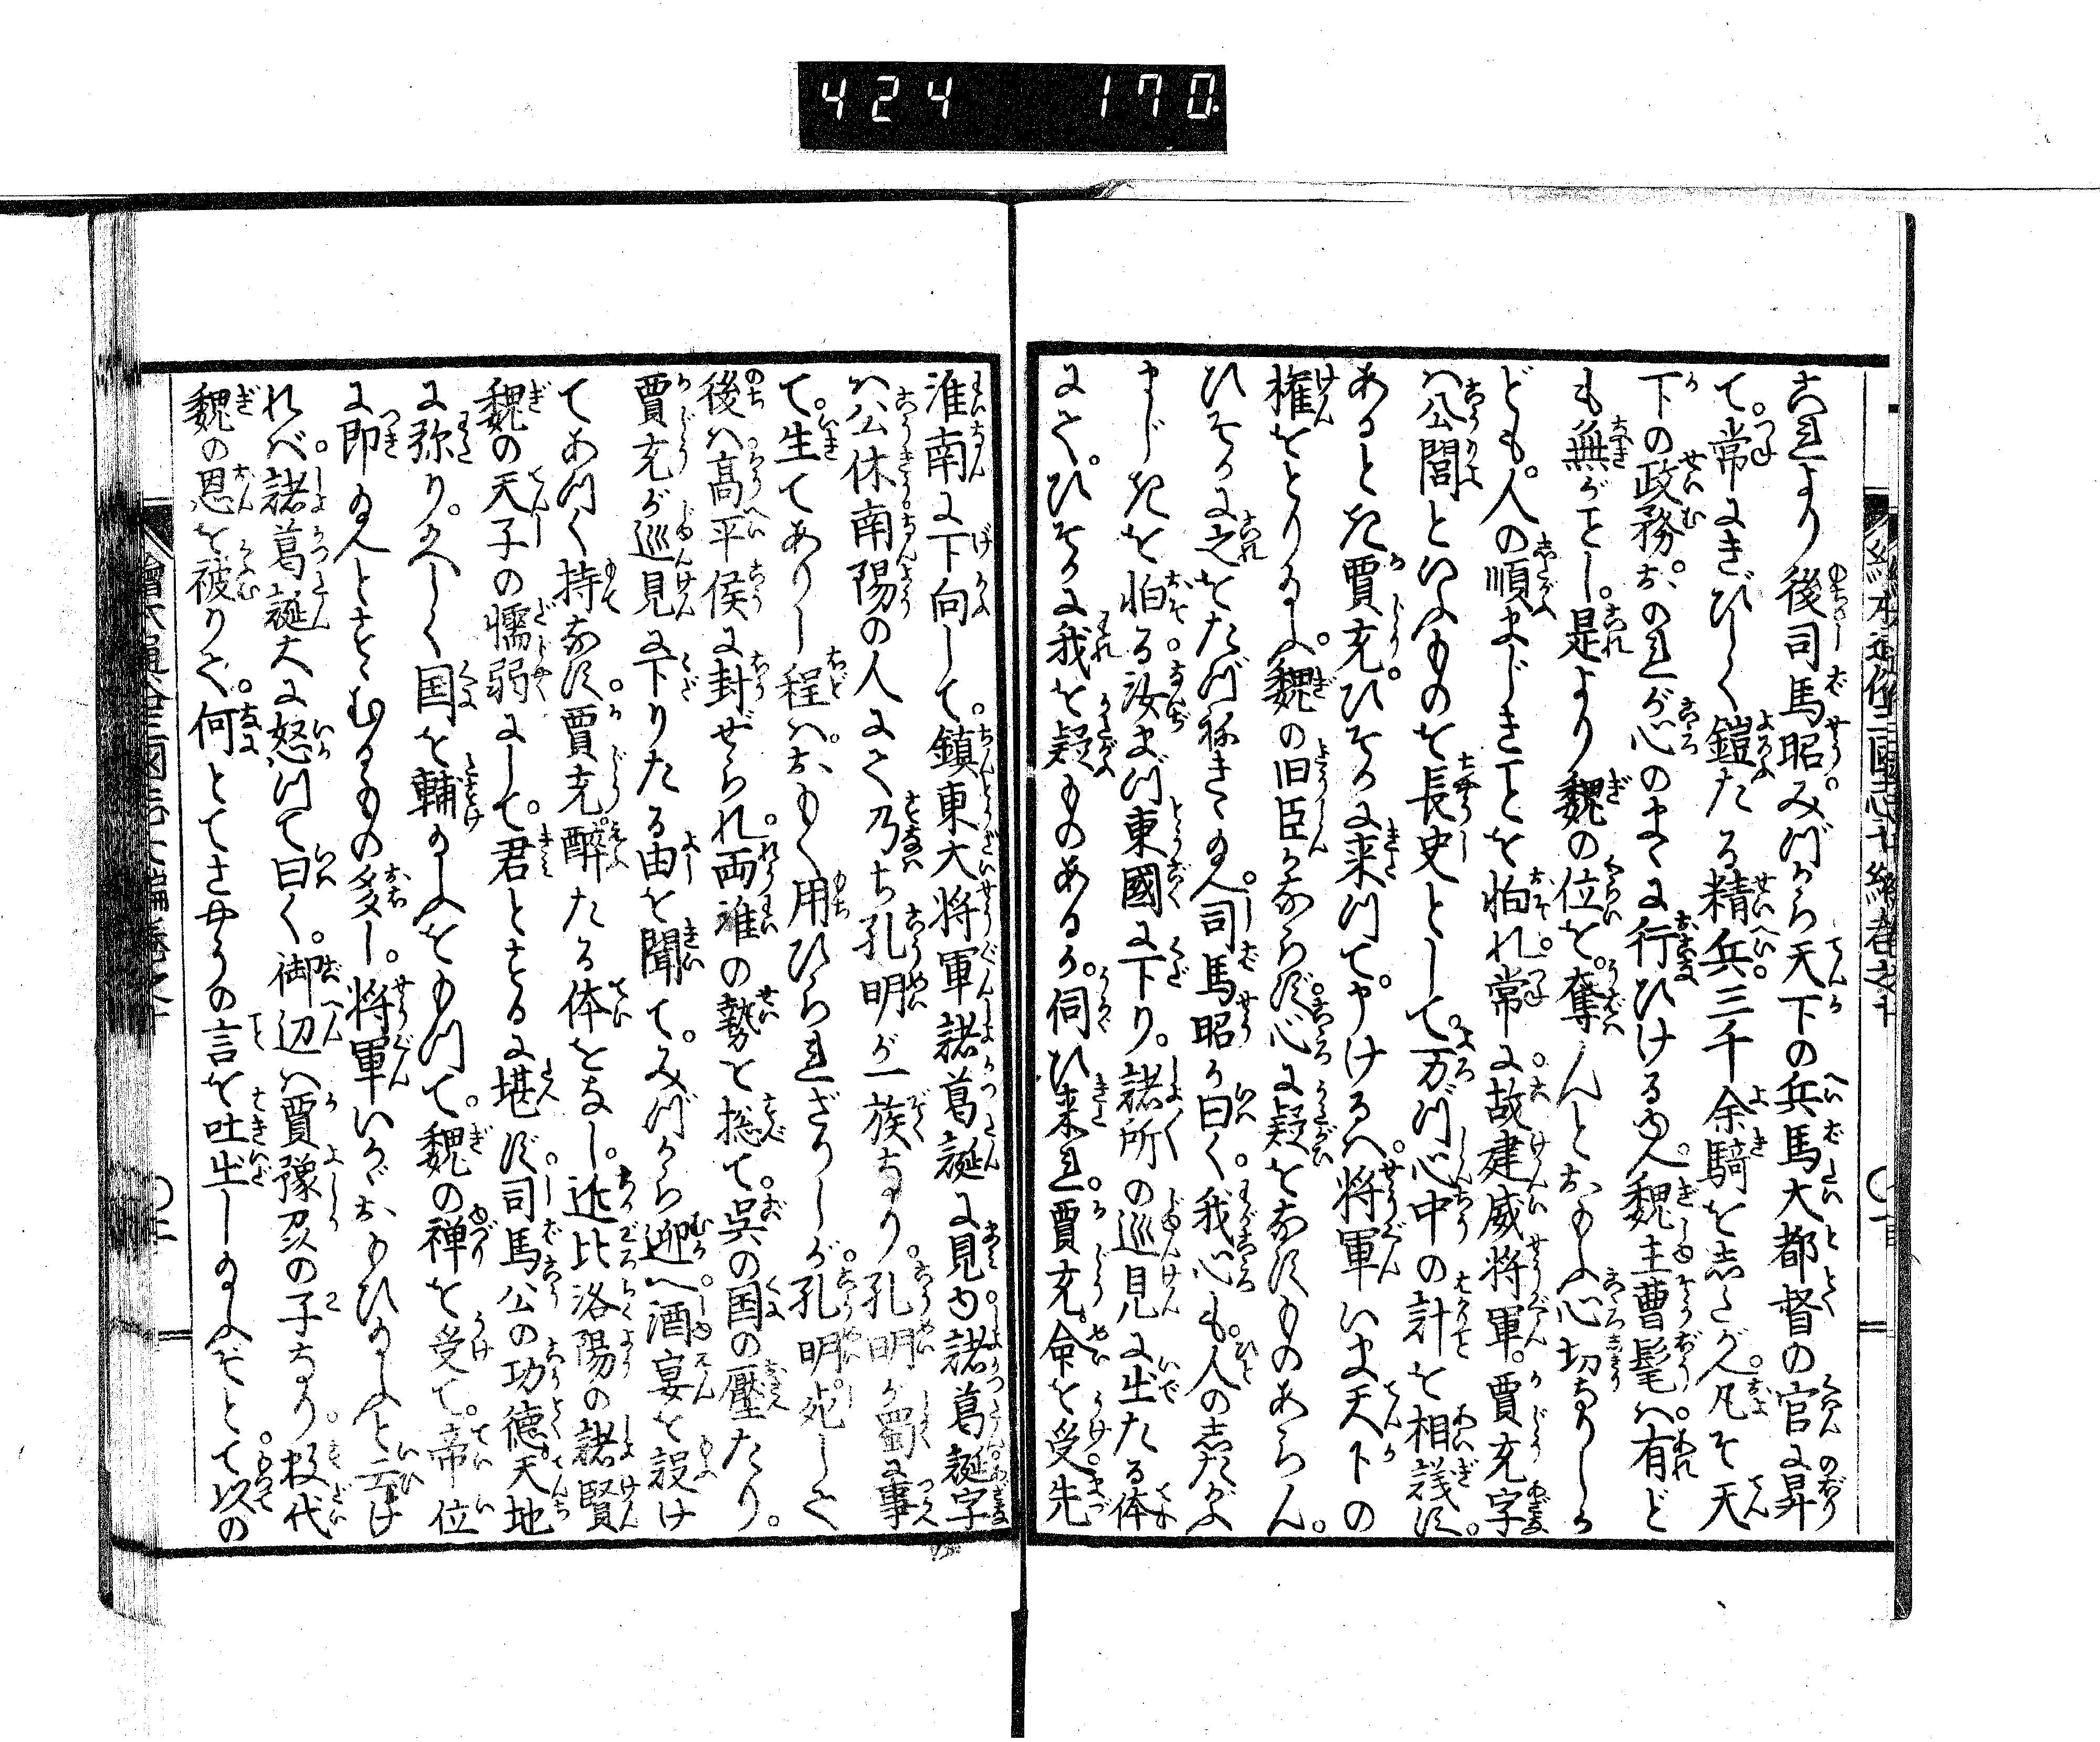 424 170
これより後司馬昭みづから天下の兵馬大都督の官に昇
て。常にきびしく鎧たる精兵。三千余騎を志たがへ。凡そ天
下の政務。おのれが心のまゝに行ひける。魏主曹髦ハ有ど
も無がごとし。是より魏の位を。奪んとおもふ心切なりしか
ども。人の順まじきことを怕れ。常に故建威将軍。賈充字
ハ公閭といふものを長史として。万づ心中の計を相議す。
あるとき賈充。ひそかに来つて。申けるハ。将軍いま天下の
権をとりふ。魏の旧臣かならず心に疑をなすものあらん。
ひそかに之をたづねきゝへ。司馬昭が曰く。我心も。人の志たがふ
まじきを怕る。汝まづ東國に下り。諸所の巡見に出たる体
にて。ひそかに我を疑ものあるか。伺ひ来れ。賈充。命を受先
淮南に下向して。鎮東大将軍諸葛誕に見ゆ諸葛誕字
ハ公休南陽の人にて乃ち孔明が一族なり。孔明が蜀に事
て。生てありし程ハ。おもく用ひられざりしが。孔明死して
後ハ高平侯に封ぜられ。両淮の勢を捴て。呉の国の壓たり。
賈充が巡見に下りたる由を聞て。みづから迎へ。酒宴を設け
てあつく持なす。賈充。酔たる体をなし。近比洛陽の諸賢
魏の天子の懦弱にして。君とするに堪ず。司馬公の功徳。天地
に弥り。久しく国を輔しをもつて。魏の禅を受て。帝位
に即へとすゝむるもの多し。将軍いかゞおもひふと云け
れべ。諸葛誕大に怒つて曰く。御辺ハ賈豫刕の子なり。数代
魏の恩を被りて。何とてさやうの言を吐出しふぞとて以の